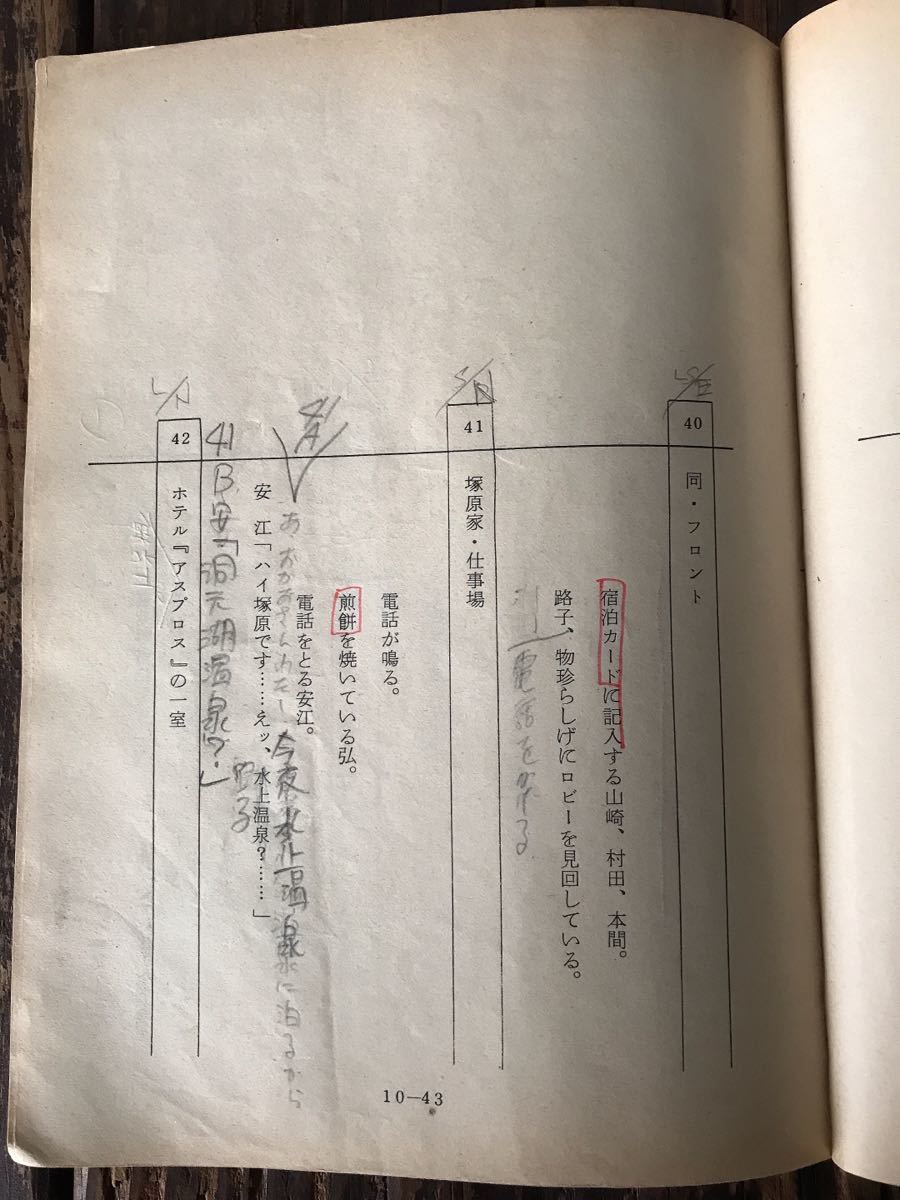 40
同・フロント
宿泊カードに記入する山崎、村田、本間。
路子、物珍らしげにロビーを見回している。
電話をかける
41
塚原家・仕事場
電話が鳴る。
煎餅を焼いている弘。
電話をとる安江。
41
A
あ おかあさん
今夜水上温泉に泊るから
安　江「ハイ塚原です……えッ、水上温泉？……」
41
B
安「洞元湖温泉？」
42
ホテル『アスプロス』の一室
10—43